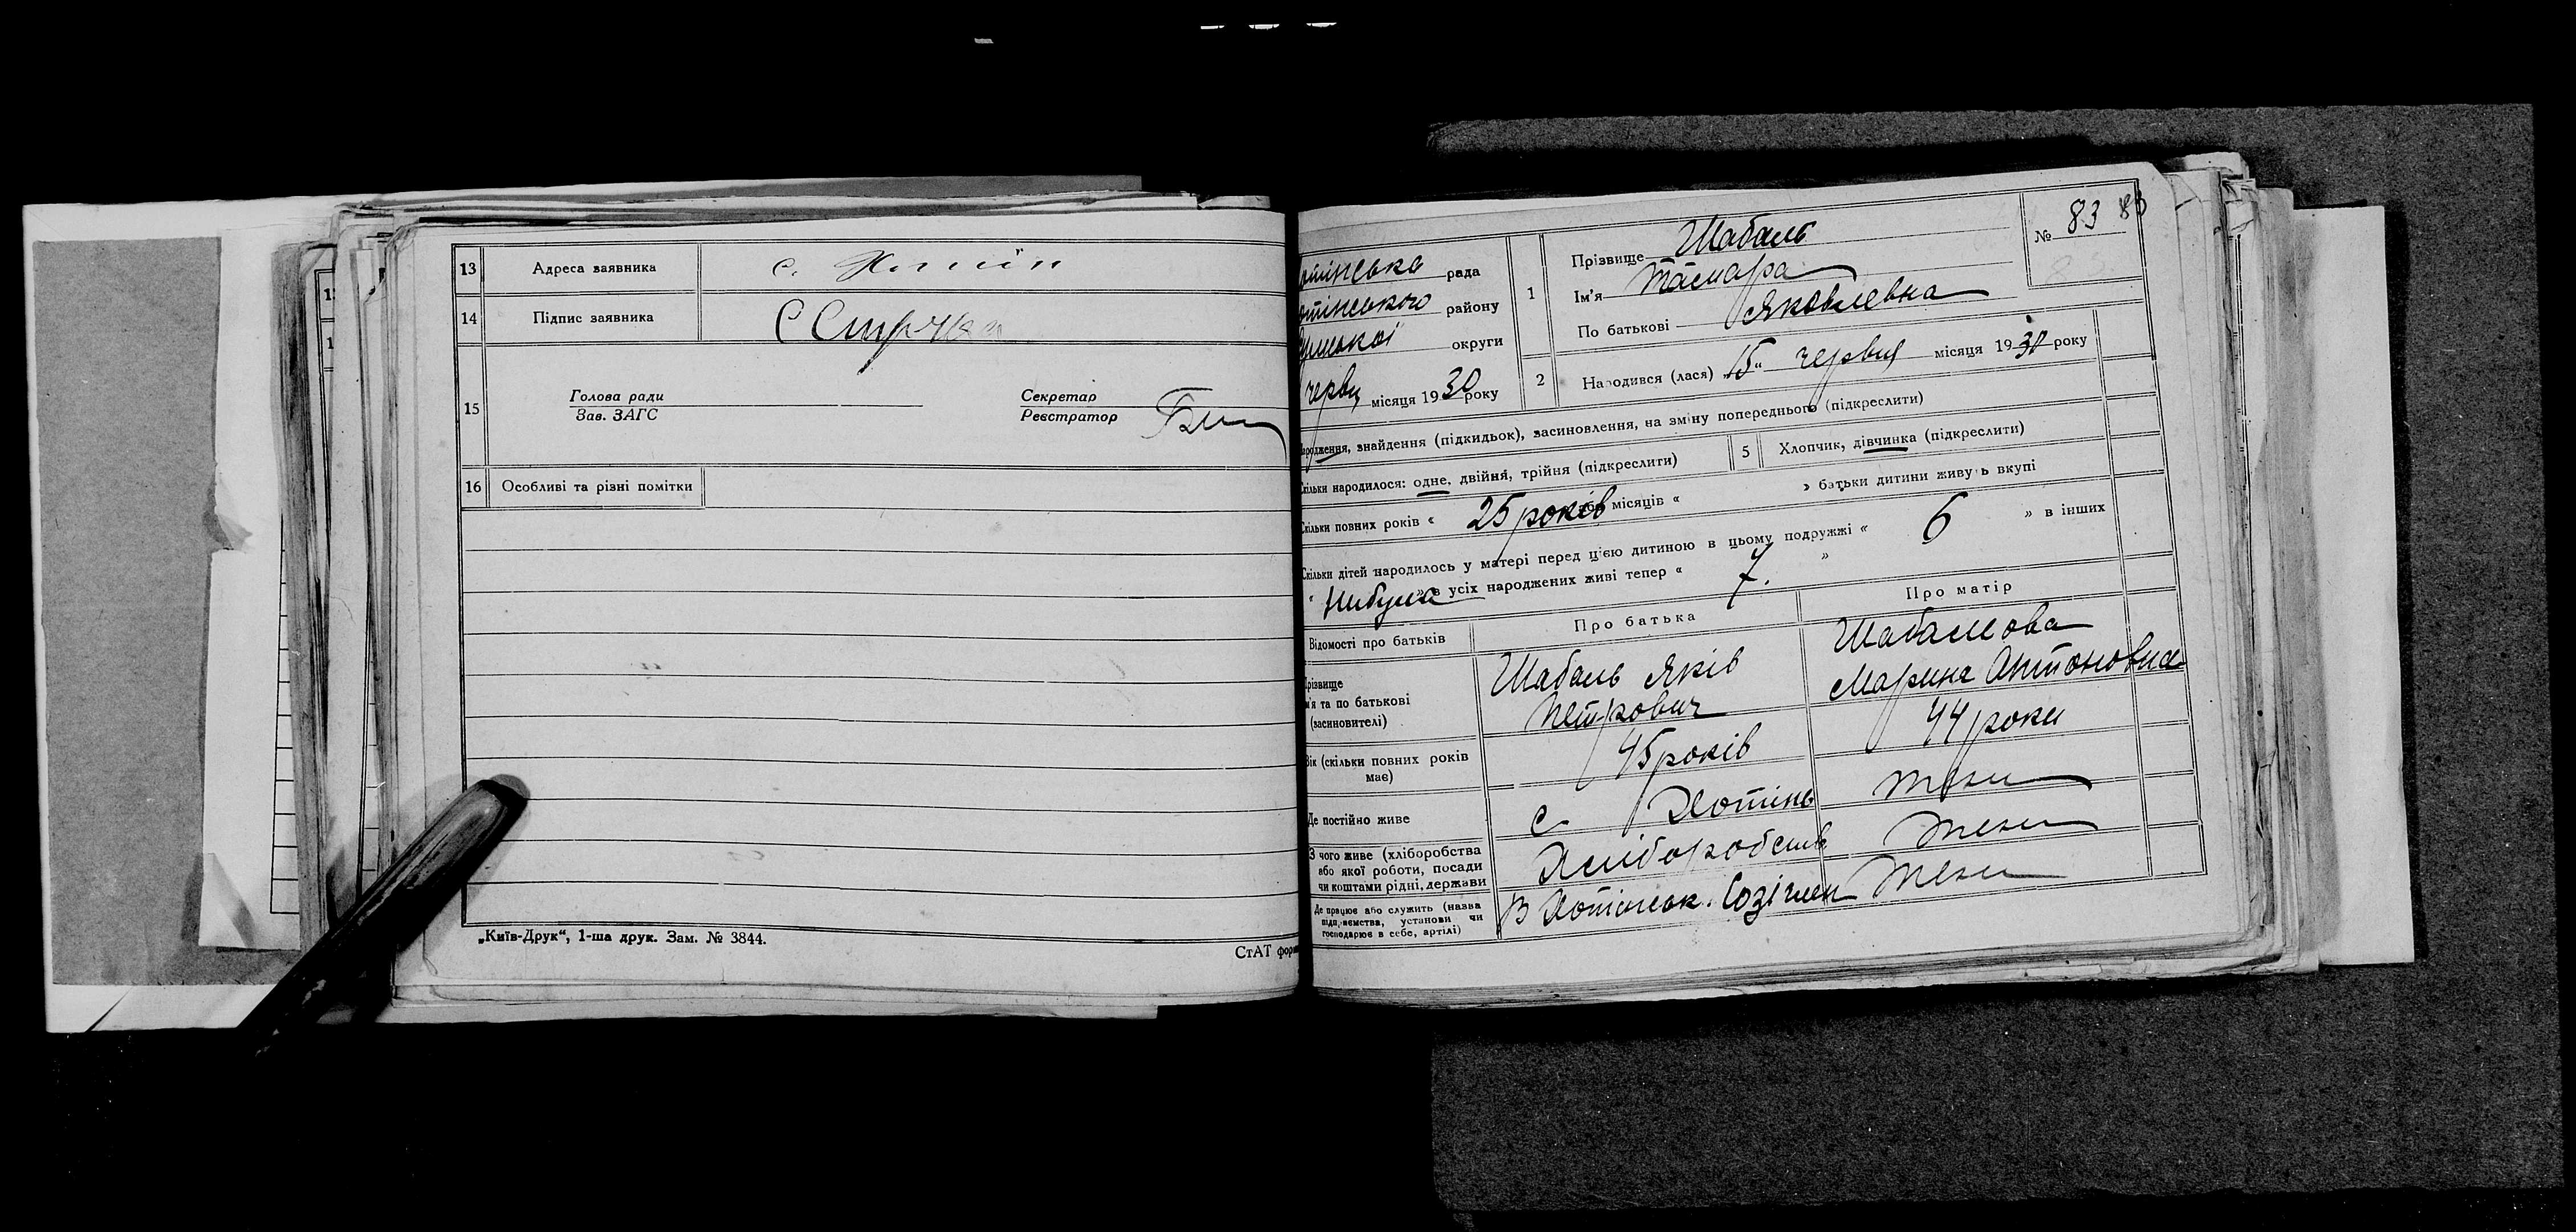 13 Адреса заявника с. Хотін
14 Підпис заявника С
15 Голова ради Секретар
Зав. ЗАГС Реєстратор
16 Особливі та різні помітки
„Київ-Друк“, 1-ша друк. Зам. № 3844.
СтАТ фор
№ 83 83
рада
району
округи
червц місяця 1930 року
1 Прізвище Шабаль
Ім'я Тамара
По батькові Яковлевна
2 Народився (лася) „15“ червця місяця 1930 року
народження, знайдення (підкидьок), засиновлення, на зміну попереднього (підкреслити)
Скільки народилося: одне, двійня, трійня (підкреслити)
5 Хлопчик, дівчинка (підкреслити)
Скільки повних років « 25 років або місяців « » батьки дитини живуть вкупі
Скільки дітей народилось у матері перед цією дитиною в цьому подружжі « 6 » в інших
« Нибуло » в усіх народжених живі тепер « 7. »
Відомості про батьків Про батька Про матір
Прізвище
м'я та по батькові
(засиновителі)
Шабаль Яків
Петрович
Шабалєва
Марина Антоновна
Вік (скільки повних років
має)
45 років 44 роки
Де постійно живе с Хотінь теж
З чого живе (хліборобства
або якої роботи, посади
чи коштами рідні, держави
Хлібороб теж
Де працює або служить (назва
підприємства, установи чи
господарює в себе, артілі)
В Хотінськ. Созі член теж